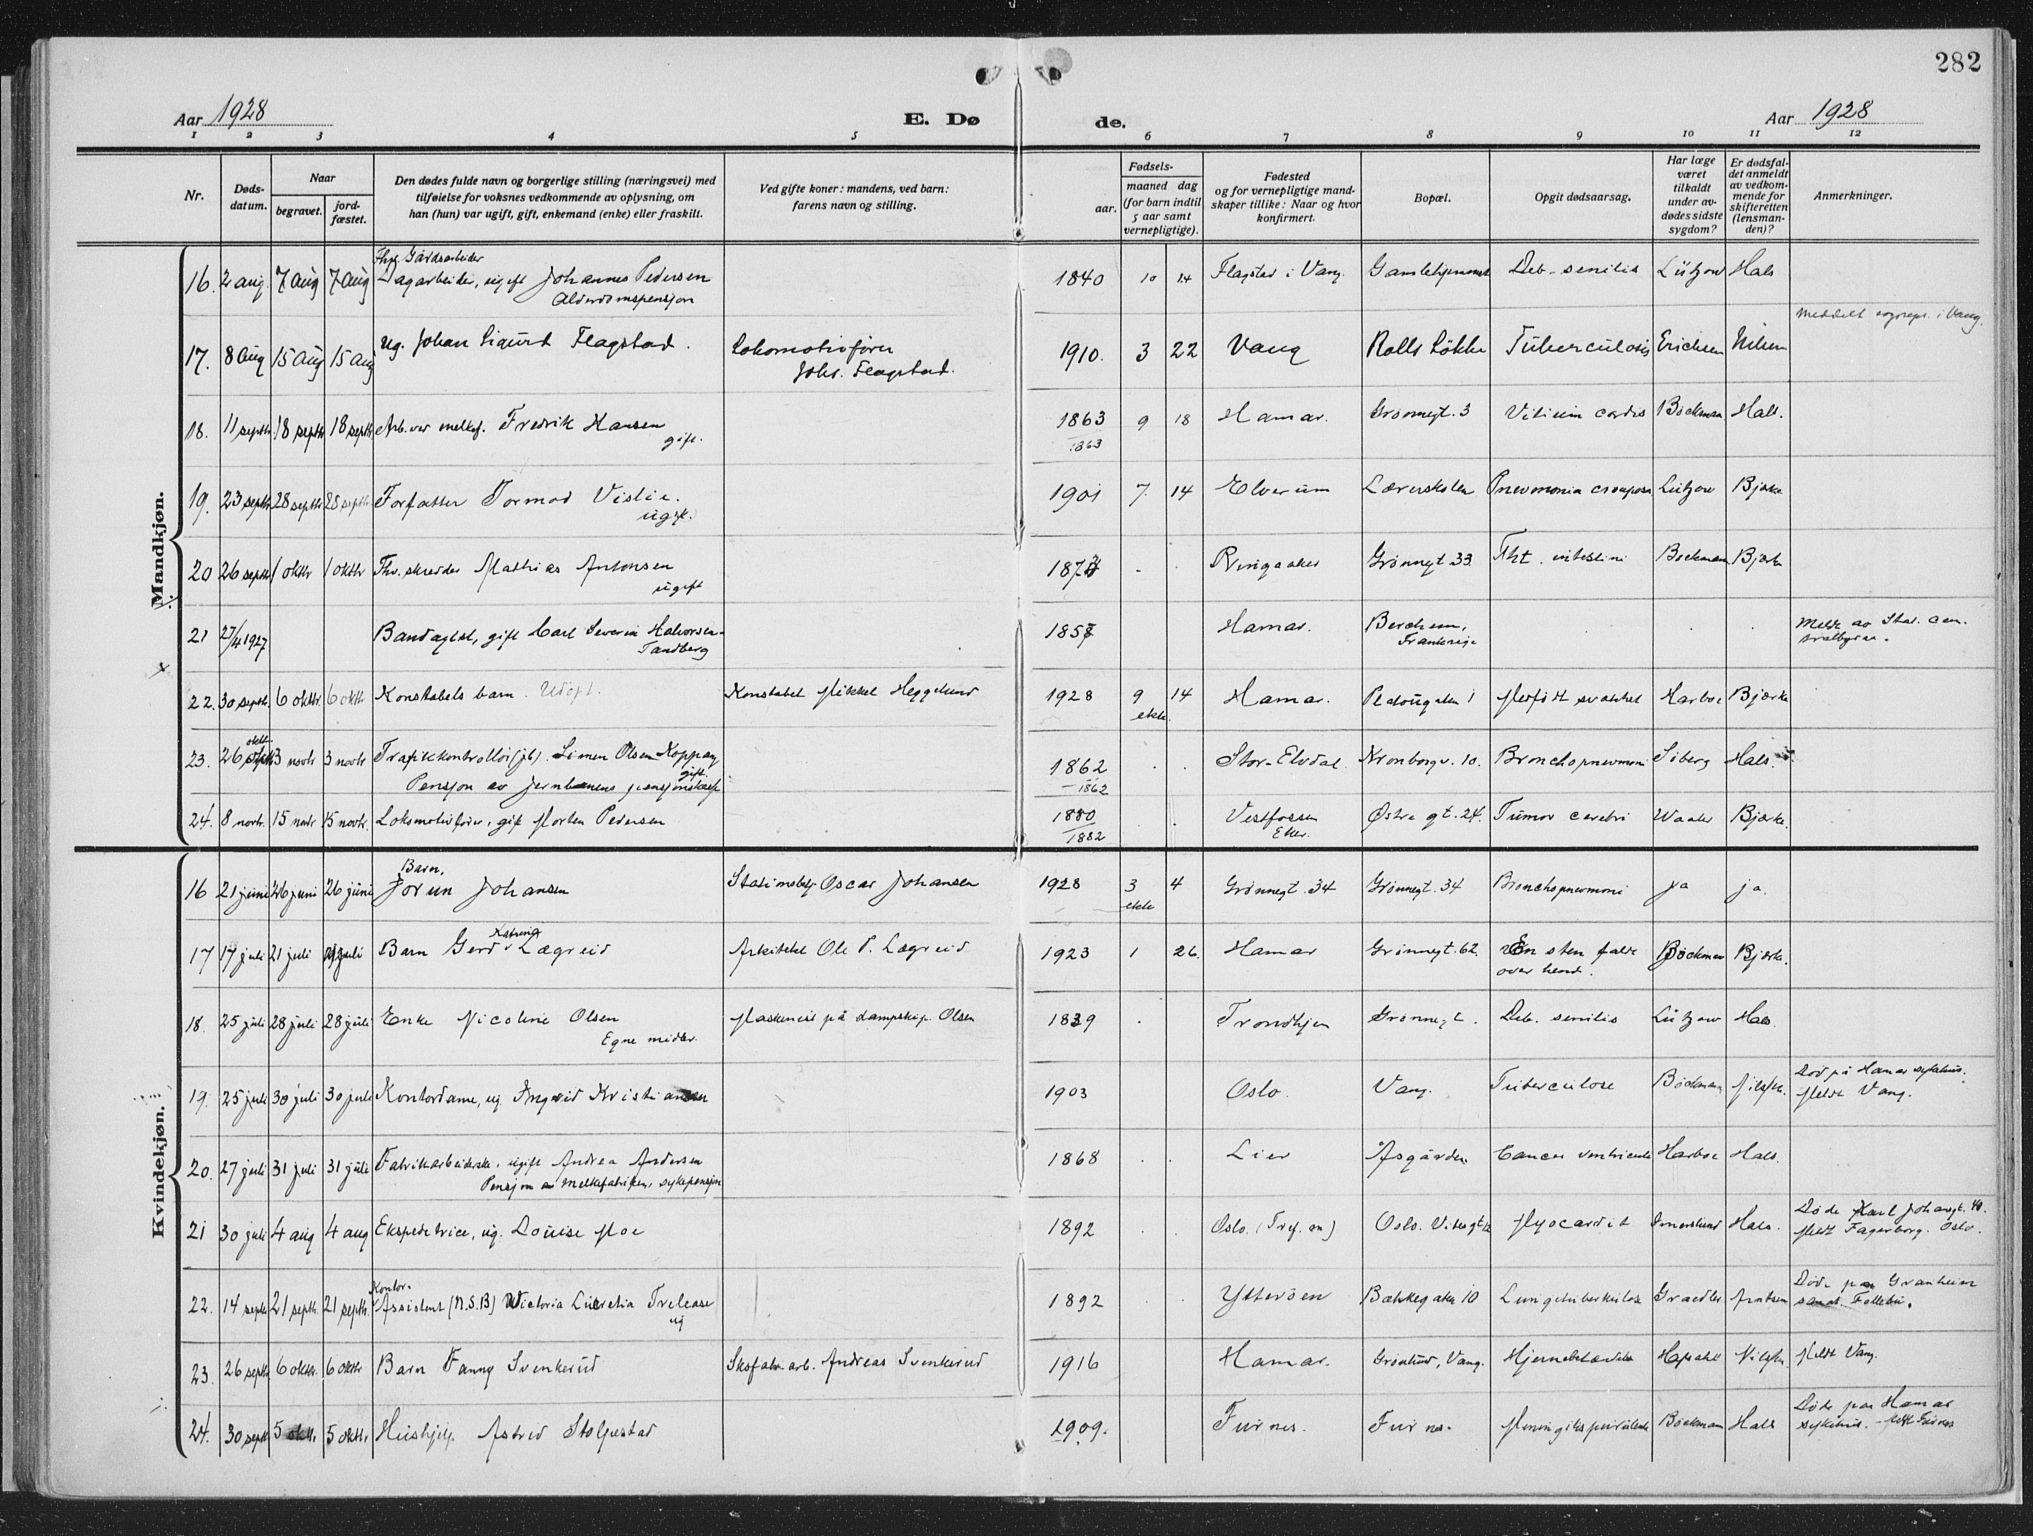 282
Aar 1928
E. Dø
de.
Aar 1928
1 2 3 4 5 6 7 8 9 10 11 12
Nr.
Døds-
datum.
Naar
begravet.
jord-
fæstet.
Den dødes fulde navn og borgerlige stilling (næringsvei) med
tilføielse for voksnes vedkommende av oplysning, om
han (hun) var ugift, gift, enkemand (enke) eller fraskilt.
Ved gifte koner: mandens, ved barn:
farens navn og stilling.
Fødsels-
aar.
maaned dag
(for barn indtil
5 aar samt
vernepligtige).
Fødested
og for vernepligtige mand-
skaper tillike: Naar og hvor
konfirmert.
Bopæl.
Opgit dødsaarsag.
Har læge
været
tilkaldt
under av-
dødes sidste
sygdom?
Er dødsfal-
det anmeldt
av vedkom-
mende for
skifteretten
(lensman-
den)?
Anmerkninger.
Mandkjøn.
Gårdsarbeider
16. 2 aug. 7 aug 7 aug Dagarbeider, ugift Johannes Pedersen 1840 10 14 Flagstad i Vang. Gamlehjemmet Deb. senilis Lützow Hals
Alderdomspensjon
17. 8 aug 15 aug 15 aug ug. Johan Sigurd Flagstad. Lokomotivfører 1910. 3 22 Vang Rolls Løkke Tuberculosis Erichsen Nilsen
Johs. Flagstad.
Meddelt sognepr. i Vang.
18. 11 septbr. 18 septbr 18 septbr Arb. ved melkef. Fredrik Hansen 1863 9 18 Hamar. Grønnegt. 3 Vitium cordis Bøckman Hals.
gift. 1863
19. 23 septbr 28 septbr 28 septbr Forfatter Tormod Vislie. 1901 7. 14 Elverum Lærerskolen Pneumonia crouposa Lützow Bjørke
ugift.
20 26 septbr 1 oktbr 1 oktbr Fhv. skredder Mathias Antonsen 1877 . . Ringsaker Grønnegt. 33. Tbt. intestini Bøckman Bjørke
ugift
21 27/4 1927 Bandagist, gift Carl Severin Halvorsen- 1857 Hamar. Berchem, . . . Meldt av Stat. cen-
Tandberg Frankrige tralbyraa.
22. 30 septbr. 6 oktbr 6 oktbr Konstabels barn. Udøpt. Konstabel Mikkel Heggelund 1928 9 14 Hamar. Parkgaten 1 Medfødt svakhet Harboe Bjørke
ekte.
oktbr.
23. 26 3 novbr 3 novbr Trafikkontrollør (jb). Simen Olsen Koppang 1862 . . Stor-Elvdal. Kronborgv. 10. Bronchopneumoni Siberg Hals.
gift.
Pensjon av jernbanens pensjonskasse 1862
24. 8 novbr. 15 novbr 15 novbr. Lokomotivfører, gift Morten Pedersen 1880 . . Vestfossen Østre gt. 24. Tumor cerebri Waaler Bjørke.
1882 Eker.
Kvindekjøn.
Barn,
16 21 juni 26 juni 26 juni Jorun Johansen Stasjonsbetj. Oscar Johansen 1928 3 4 Grønnegt. 34 Grønnegt. 34 Bronchopneumoni ja ja.
ekte
Katrine
17 17 juli 21 juli 21 juli Barn Gerd Lægreid Arkitekt Ole P. Lægreid 1923 1 26. Hamar Grønnegt. 62. En sten faldt Bøckman Bjørke.
over hend.
18. 25 juli 28 juli 28 juli Enke Nicoline Olsen Maskinist på dampskip. Olsen 1839 . Trondhjem Grønnegt. Deb. senilis Lützow Hals.
Egne midler.
19. 25 juli 30 juli 30 juli Kontordame, ug. Ingrid Kristiansen 1903 Oslo. Vang. Tuberculose Bøckman Nilsen. Død på Hamar sykehus.
Meldt Vang.
20. 27 juli 31 juli 31 juli Fabrikarbeiderske, ugift Andrea Andersen 1868 . . Lier Åsgården Cancer ventriculi Harboe Hals.
Pensjon av melkefabriken, sykepensjon
21 30 juli 4 aug 4 aug Ekspeditrice, ug. Louise Moe 1892 . . Oslo. (Tref. m) Oslo. Myocardit Hals. Døde Karl Johansgt. 40.
Meldt Fagerborg. Oslo.
Kontor-
22. 14 septbr 21 septbr. 21 septbr. Assistent (N.S.B) Victoria Lucretia Trelease 1892 Ytterøen Bakkegaten 10 Lungetuberkulose Arntsen Døde paa Granheim
ug sanat. Follebu.
23. 26 septbr 6 oktbr. 6 oktbr Barn Fanny Svenkerud Skofabr. arb. Andreas Svenkerud 1916 Hamar. Grønlund, Vang. Hjernebetændelse Nilsen Meldt Vang.
24. 30 septbr 5 oktbr. 5 oktbr. Hushjelp. Astrid Stolpestad 1909. Furnes. Furnes. Meningitis purulenta Bøckman Hals Døde paa Hamar
sykehus. Meldt Furnes